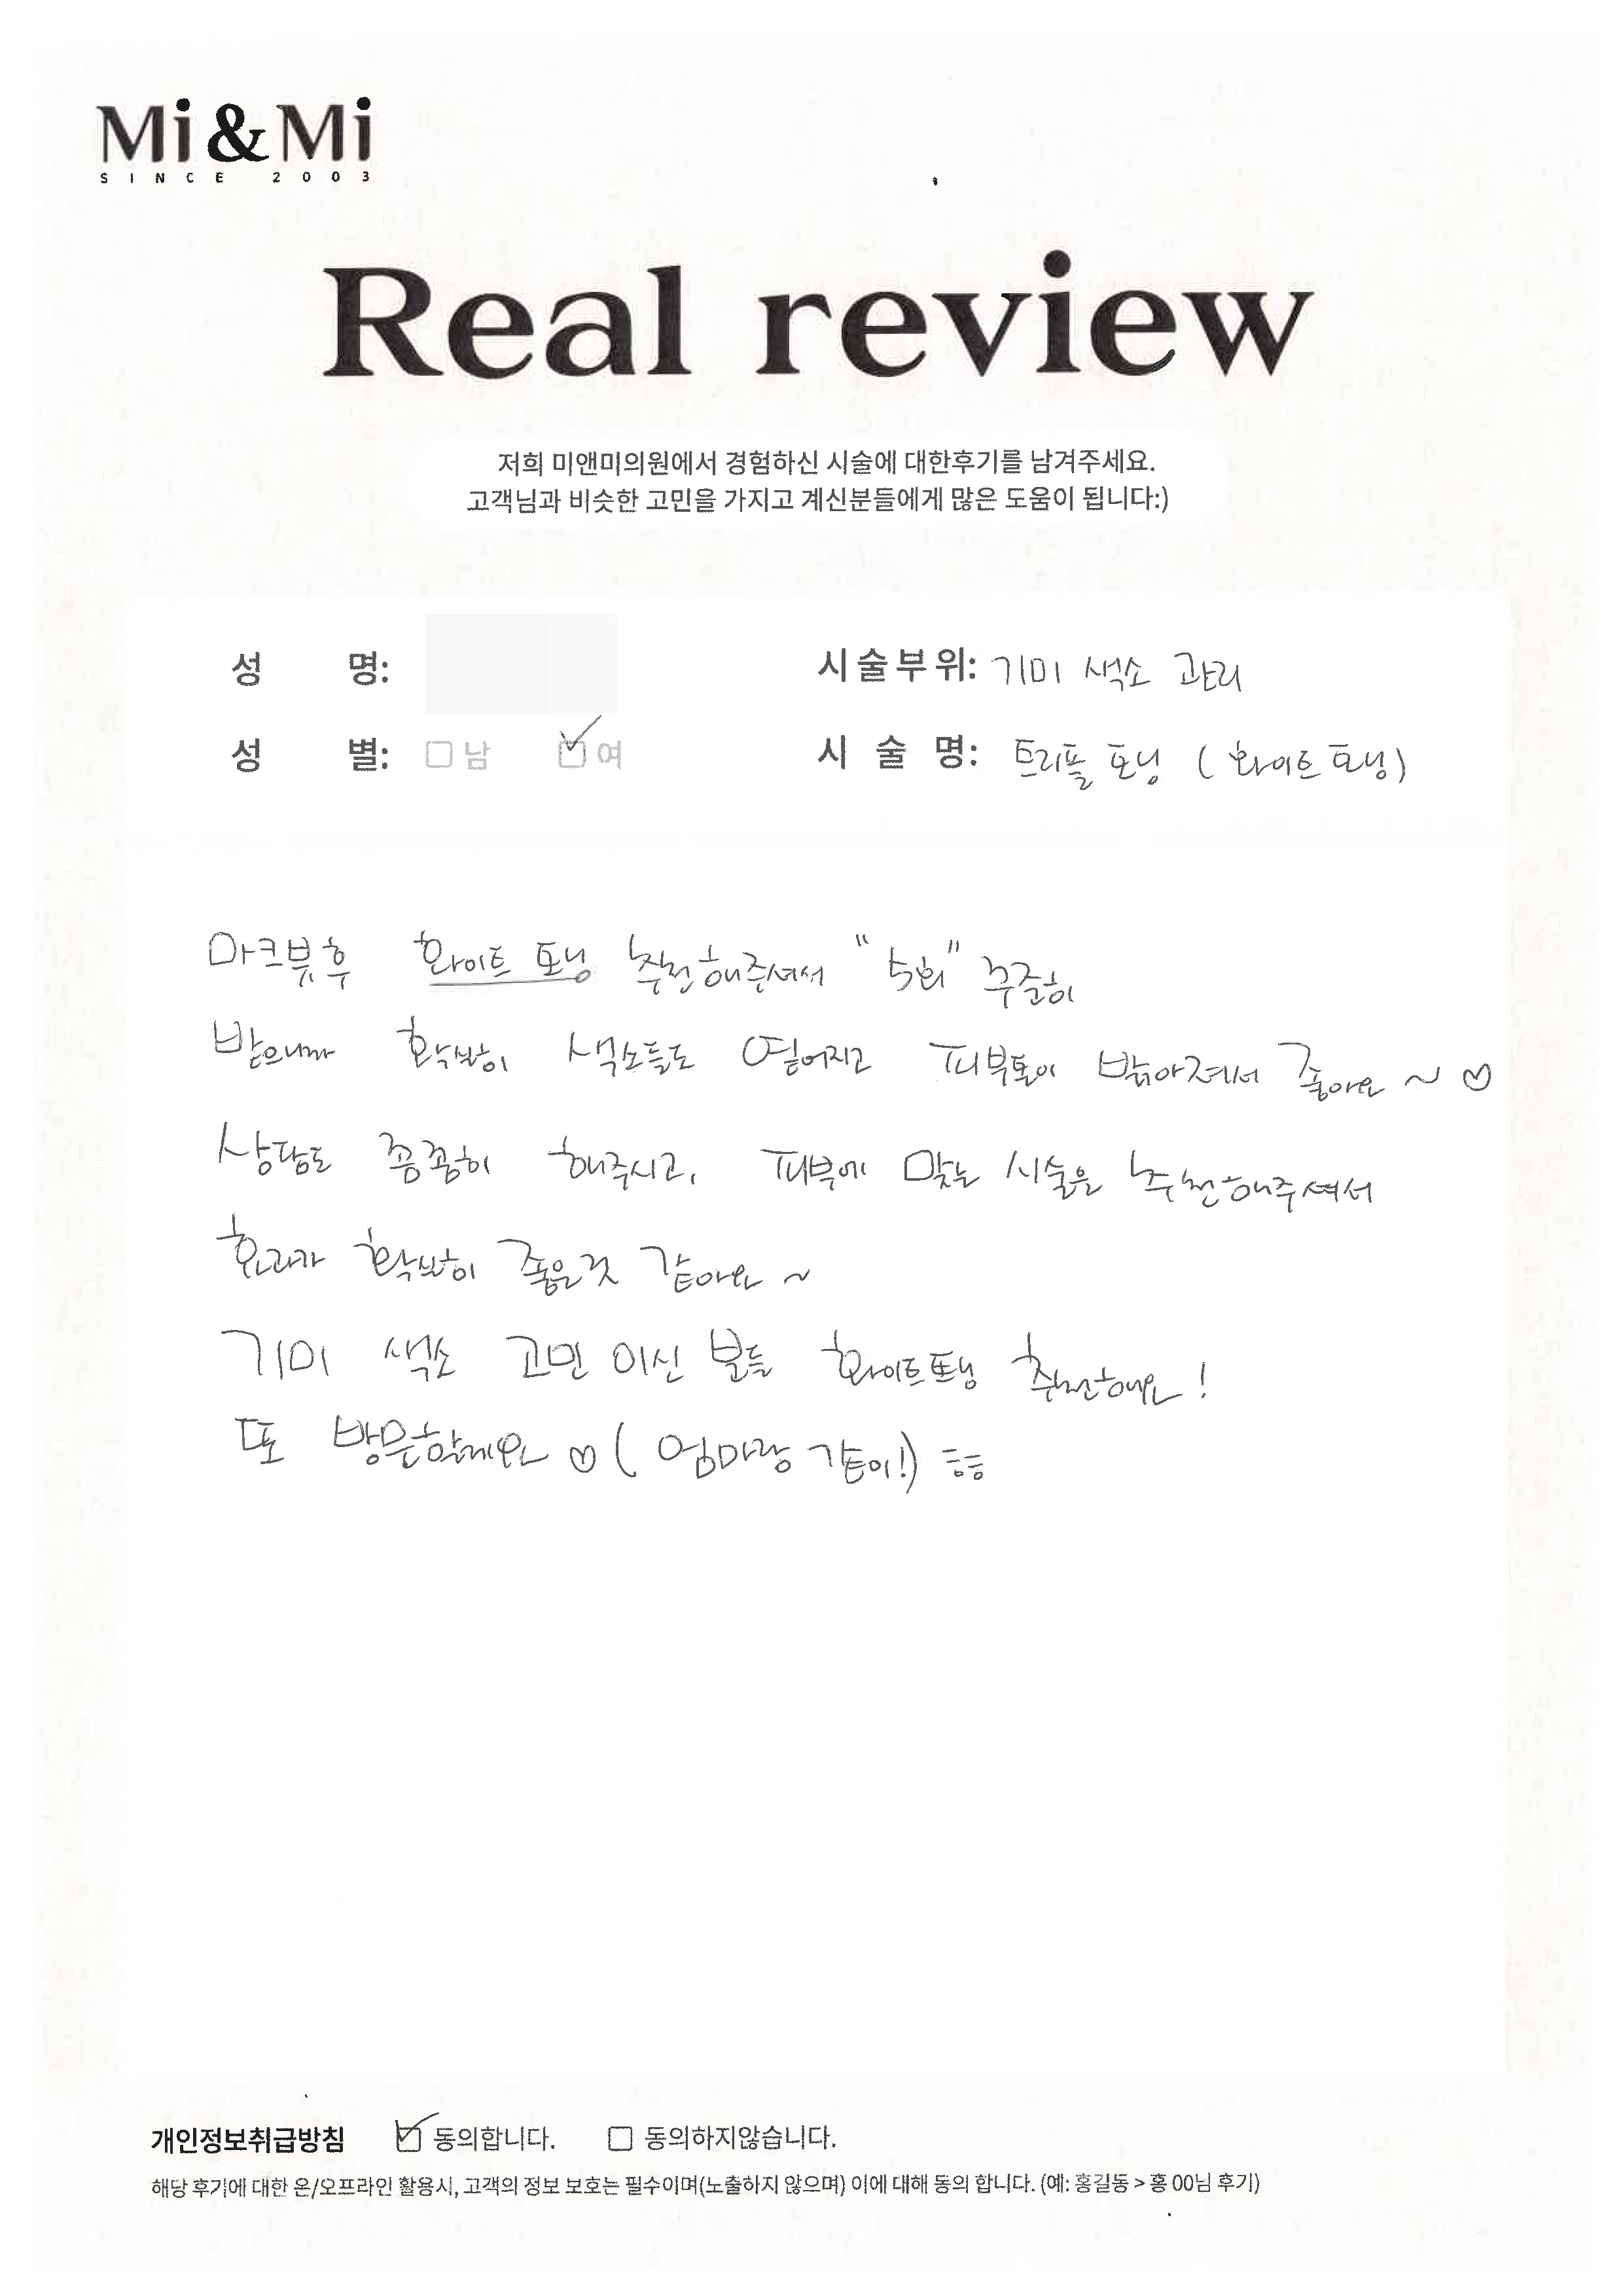 Mi&Mi
SINCE 2003
Real review
저희 미앤미의원에서 경험하신 시술에 대한후기를 남겨주세요.
고객님과 비슷한 고민을 가지고 계신분들에게 많은 도움이 됩니다:)
성 명:
시술부위: 기미 색소 관리
성 별: □남 ☑여
시 술 명: 트리플 토닝 (화이트 토닝)
마크뷰후 화이트 토닝 추천해주셔서 "5회" 꾸준히
받으니까 확실히 색소들도 옅어지고 피부톤이 밝아져서 좋아요 ~ ♡
상담도 꼼꼼히 해주시고, 피부에 맞는 시술을 추천해주셔서
효과가 확실히 좋은것 같아요 ~
기미 색소 고민 이신 분들 화이트토닝 추천해요!
또 방문할게요 ♡ ( 엄마랑 같이!) ㅎㅎ
개인정보취급방침 ☑ 동의합니다. □ 동의하지않습니다.
해당 후기에 대한 온/오프라인 활용시, 고객의 정보 보호는 필수이며(노출하지 않으며) 이에 대해 동의 합니다. (예: 홍길동 > 홍 00님 후기)